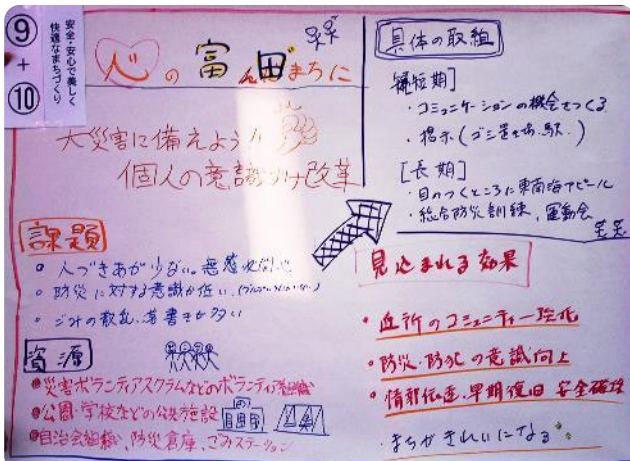 ⑨
+
⑩
安全・安心で美しく
快適なまちづくり
心の富んだまちに
大災害に備えよう!!
個人の意識づけ改革
課題
人づきあが少ない。
防災に対する意識が低い
ごみの散乱、落書きが多い
資源
災害ボランティアスクラムなどのボランティア組織
公園・学校などの公共施設
自治会組織、防災倉庫、ごみステーション
具体の取組
短期]
・コミュニケーションの機会をつくる
・掲示(ゴミ置き場、駅、)
[長期]
・目のつくところに東南海アピール
・総合防災訓練、運動会
見込まれる効果
・近所のコミュニティー強化
・防災・防犯の意識向上
・情報伝達、早期復旧 安全確保
・まちがきれいになる